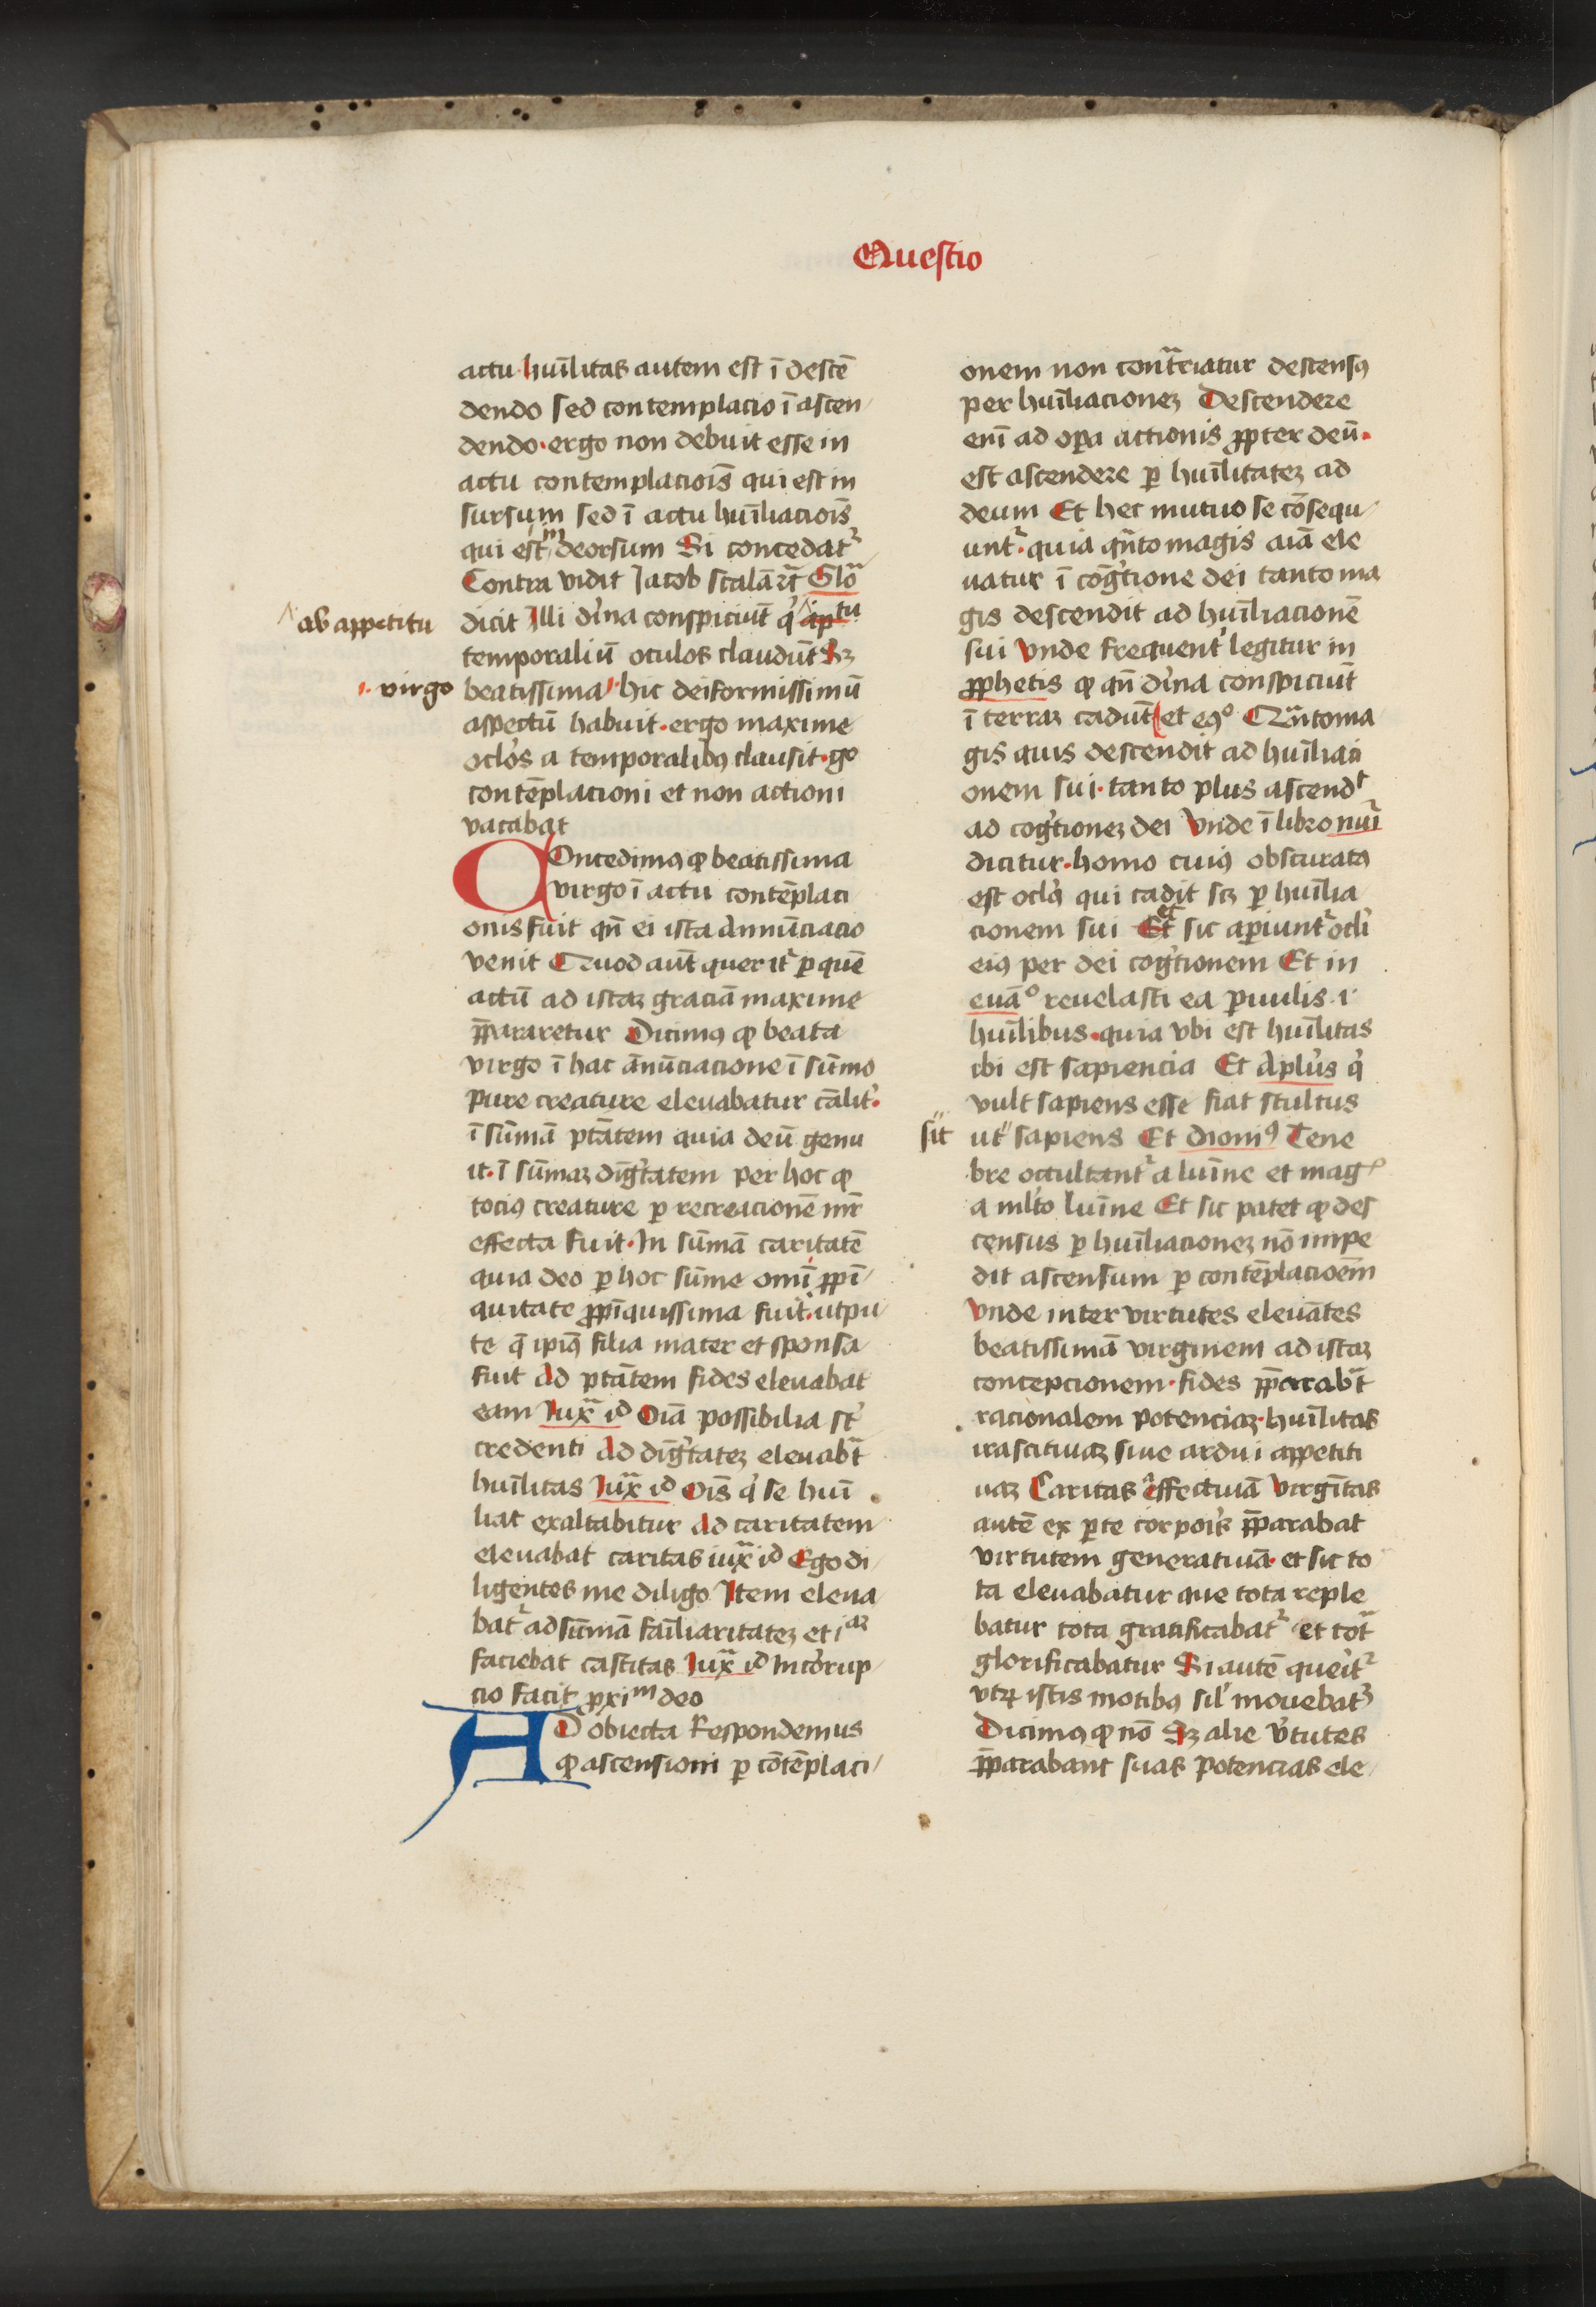 Questio
actu · huīlitas autem est ī descē
dendo sed contemplacio ī ascen
dendo · ergo non debuit esse in
actu contemplaciōis qui est in
sursum sed ī actu huīliaciois
qui est deorsum Si concedatᷣ
Contra vidit Jacob scalā
dicit Illi dīna conspiciūt
ab appetitu
temporaliū oculos claudūt Sꝫ
virgo
beatissima hic deiformissimū
aspectū habuit · ergo maxime
oclos a temporalibꝯ clausit · gͦ
contēplacioni et non actioni
vacabat
COncedimꝯ ꝙ beatissima
virgo ī actu contēplaci
onis fuit qn̄ ei ista Annūciacio
venit Quod aūt queritᷣ ꝑ quē
actū ad istaꝫ graciā maxime
p̄pararetur Dicimꝯ ꝙ beata
virgo ī hac ānūciacione ī sūmo
pure creature eleuabatur
ī sūmā ptātem quia deū genu
it · ī sūmaꝫ digtatem per hoc ꝙ
tociꝯ creature ꝑ recreacionē mr̄
effecta fuit · In sūmā caritatē
quia deo ꝑ hoc sūme omī ꝓpī
quitate ꝓpīquissima fuit · utpu
te q̄ ipiꝯ filia mater et sponsa
fuit Ad ptātem fides eleuabat
eam Iuxᷓ id Oīa possibilia st̄
credenti Ad digtateꝫ eleuabᷓt
huīlitas Iuxᷓ id Oīs qͥ se huī
liat exaltabitur Ad caritatem
eleuabat caritas iuxᷓ id Ego di
ligentes me diligo Item eleua
batᷣ ad sūmā faīliaritateꝫ et
faciebat castitas Iuxᷓ id Incorrup
cio facit ꝓxiᵐ deo
AD obiecta Respondemus
ꝙ ascensioni ꝑ cōtēplaci
onem non contᷓriatur descensꝯ
per huīliacioneꝫ Descendere
enī ad oꝑa actionis ꝓpter deū ·
est ascendere ꝑ huīlitateꝫ ad
deum Et hec mutuo se cōsequ
untᷣ · quia qn̄to magis aīā ele
uatur ī cogtione dei tanto ma
gis descendit ad huīliacionē
sui Vnde frequent̓ legitur in
ꝓphetis ꝙ qn̄ dīna conspiciūt
ī terraꝫ cadūt et eꝯͦ Qᷓnto ma
gis quis descendit ad huīliaci
onem sui · tanto plus ascendᵗ
ad cogtioneꝫ dei Vnde ī libro nuīͥ
dicitur · homo cuiꝯ obscuratꝯ
est oclꝯ qui cadit scꝫ ꝑ huīlia
cionem sui et sic aꝑiuntᷣ ocli
eiꝯ per dei cogtionem Et in
euāͦ reuelasti ea ꝑuulis · i ·
huīlibus · quia vbi est huīlitas
ibi est sapiencia Et Aplūs qͥ
vult sapiens esse fiat stultus
sit
ut sapiens Et dioniꝯ Tene
bre occultantᷣ a luīne et magͥ
a mlto luīne Et sic patet ꝙ des
census ꝑ huīliacioneꝫ nō impe
dit ascensum ꝑ contēplacioēm
Vnde inter virtutes eleuātes
beatissimā virginem ad istaꝫ
concepcionem · fides p̄parabᷓt
racionalem potenciaꝫ · huīlitas
irascitiuaꝫ siue ardui appetiti
uaꝫ Caritas affectiuā Virgītas
autē ex ꝑte corpoīs p̄parabat
virtutem generatiuā · et sic to
ta eleuabatur que tota reple
batur tota gratificabatᷣ et totᷓ
glorificabatur Si autē queritᷣ
vtꝝ istis motibꝯ sil̓ mouebatᷣ
Dicimꝯ ꝙ nō Sꝫ alie v̓tutes
p̄parabant suas potencias ele